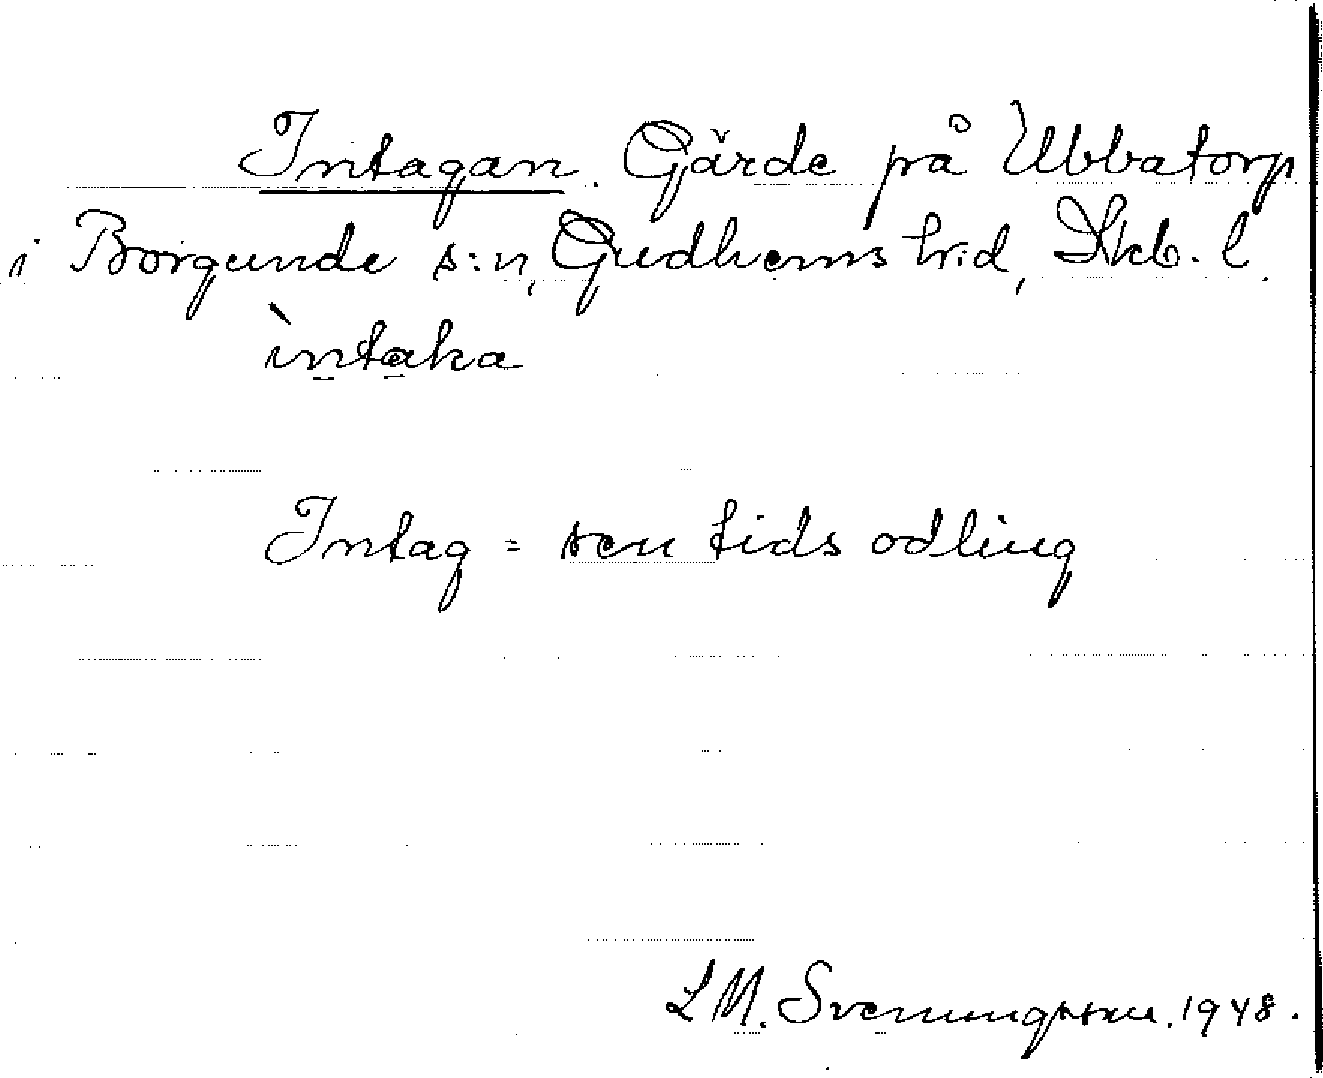 Intagan. Gärde på Ubbatorp
i Borgunde s:n, Gudhems h:d, Skb. l.
ìntaka
Intag = sen tids odling
L M. Svenungsson. 1948.